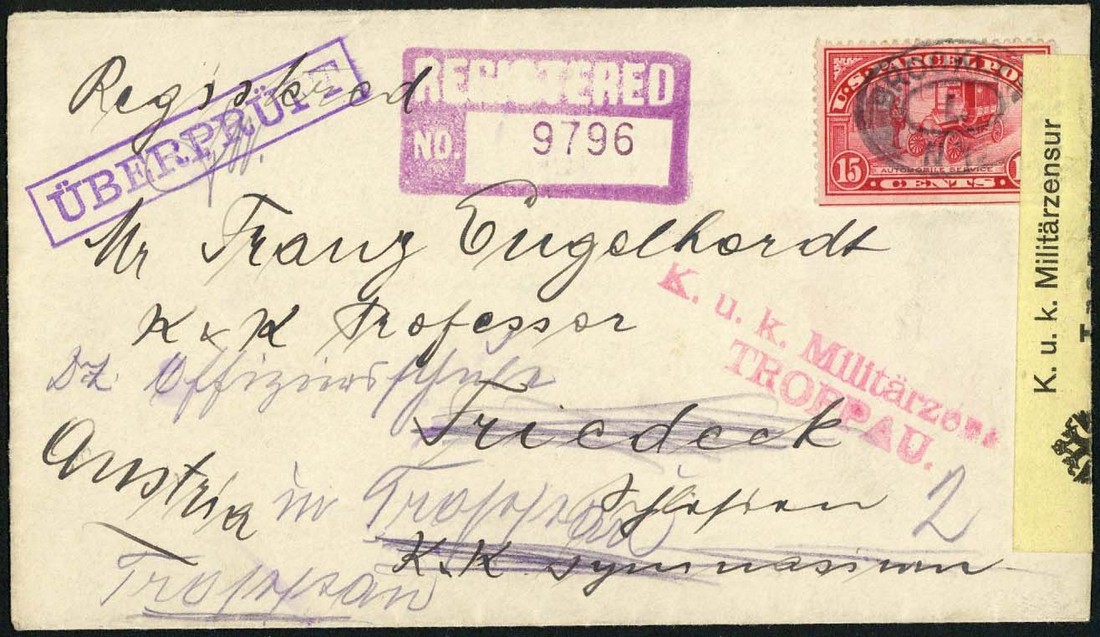 Registered
ÜBERPRÜFT.
REGISTERED
NO. 9796
U.S. PARCEL POST
BROOKLYN
N.Y.
AUTOMOBILE SERVICE
15
CENTS
Mr Franz Engelhardt
K u K Professor
dz. Offiziersschule
Friedeck
Austria in Troppau Schlesien 2
K. K. Gymnasium
Troppau
K. u. k. Militärzens
TROPPAU.
K. u. k. Militärzensur